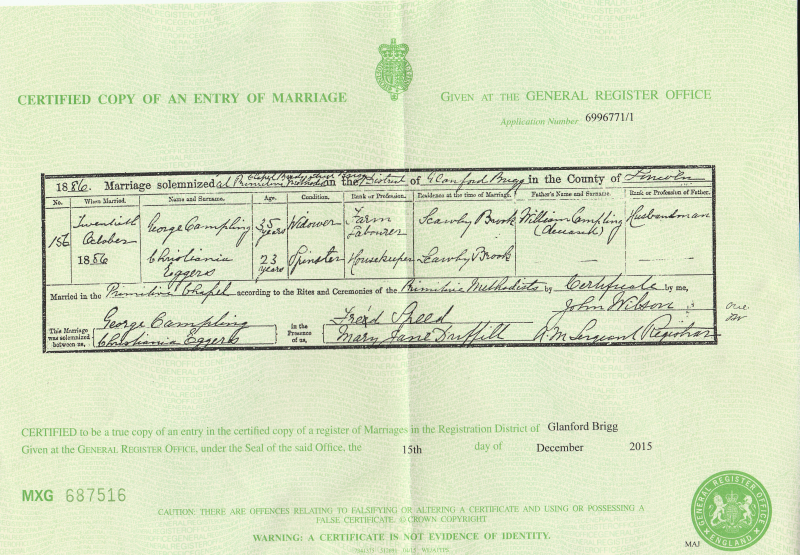 CERTIFIED COPY OF AN ENTRY OF MARRIAGE
GIVEN AT THE GENERAL REGISTER OFFICE
Application Number 6996771/1
1886. Marriage solemnized at Primitive Methodist Chapel in the District of Glanford Brigg in the County of Lincoln
No. When Married. Name and Surname. Age. Condition. Rank or Profession. Residence at the time of Marriage. Father's Name and Surname. Rank or Profession of Father.
156 Twentieth October 1886
George Campling 35 years Widower Farm Labourer Scawby Brook William Campling (deceased) Husbandman
Christiania Eggers 23 years Spinster Housekeeper Scawby Brook — —
Married in the Primitive Chapel according to the Rites and Ceremonies of the Primitive Methodists by Certificate by me,
John Wilson
This Marriage was solemnized between us, George Campling
Christiania Eggers
in the Presence of us, Fred Speed
Mary Jane Duffill
R. M. Sergeant Registrar
CERTIFIED to be a true copy of an entry in the certified copy of a register of Marriages in the Registration District of Glanford Brigg
Given at the GENERAL REGISTER OFFICE, under the Seal of the said Office, the 15th day of December 2015
MXG 687516
CAUTION: THERE ARE OFFENCES RELATING TO FALSIFYING OR ALTERING A CERTIFICATE AND USING OR POSSESSING A
FALSE CERTIFICATE. © CROWN COPYRIGHT
WARNING: A CERTIFICATE IS NOT EVIDENCE OF IDENTITY.
GENERAL REGISTER OFFICE
ENGLAND
MAJ